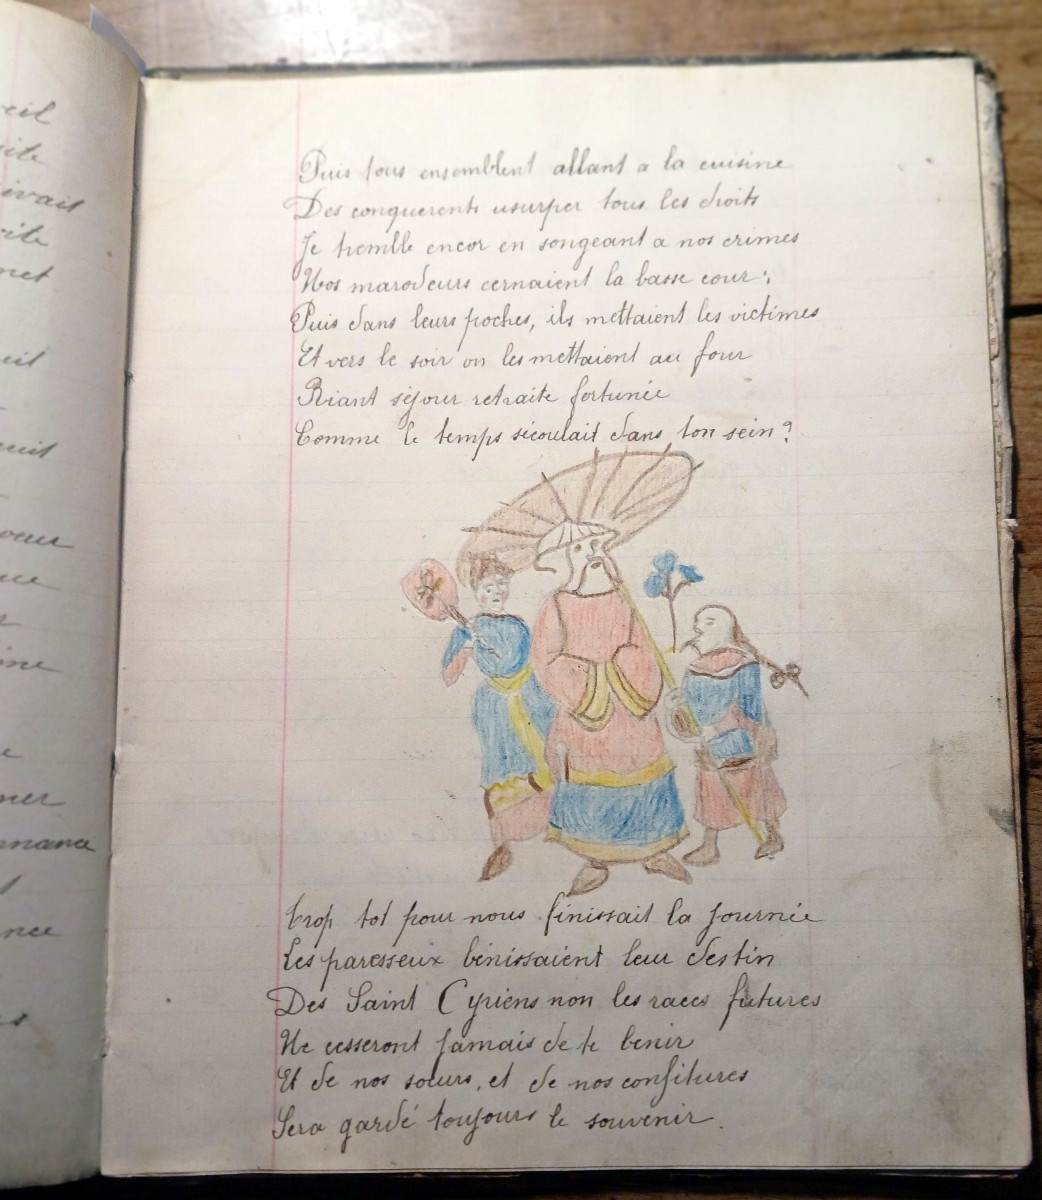 eil
ite
ivait
cite
met
uil
euil
ouer
ue
r
ine
e
ner
rnance
nce
es
Puis tous ensemblent allant a la cuisine
Des conquerents usurper tous les droits
Je tremble encor en songeant a nos crimes
Nos marodeurs cernaient la basse cour;
Puis dans leurs poches, ils mettaient les victimes
Et vers le soir on les mettaient au four
Riant séjour retraite fortunée
Comme le temps sécoulait dans ton sein?
Trop tot pour nous finissait la journée
Les paresseux bénissaient leur destin
Des Saint Cyriens non les races futures
Ne cesseront jamais de te benir
Et de nos sœurs, et de nos confitures
Sera gardé toujours le souvenir.